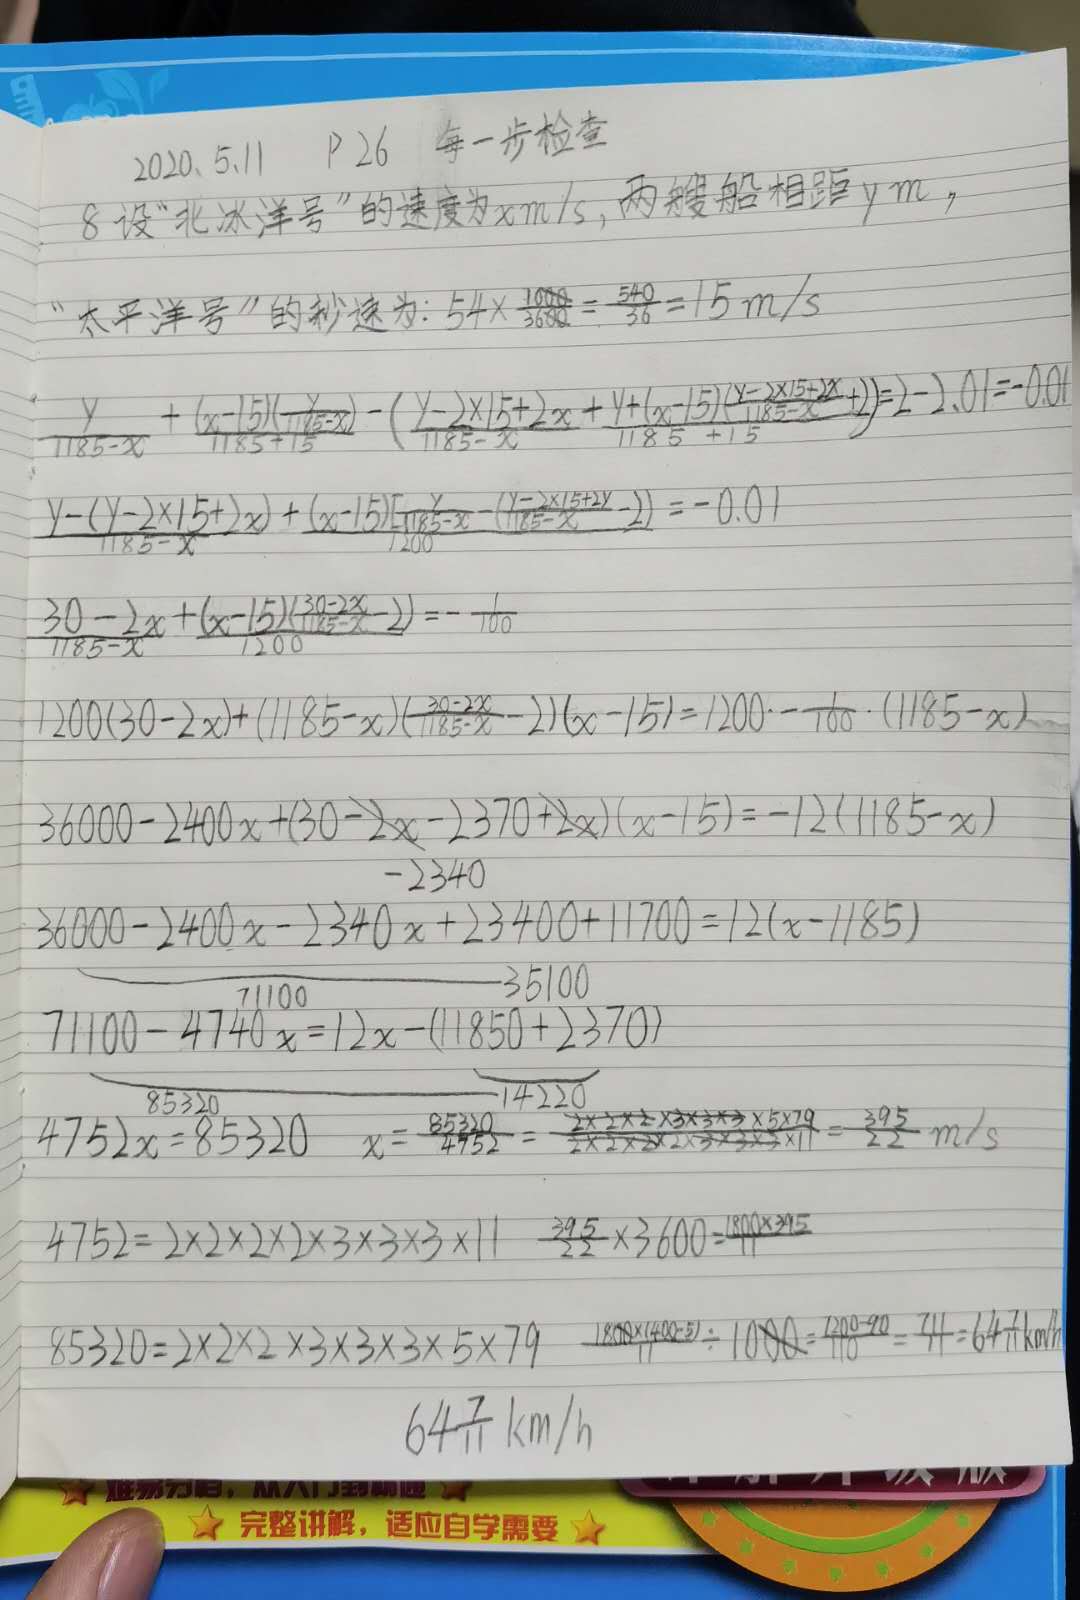 2020.5.11 P26 每一步检查
8 设“北冰洋号”的速度为xm/s,两艘船相距ym,
“太平洋号”的秒速为:54×1000/3600=540/36=15m/s
y/(1185-x)+(x-15)(y/(1185-x))/(1185+15)-((y-2×15+2x)/(1185-x)+(y+(x-15)((y-2×15+2x)/(1185-x)+2))/(1185+15))=2-2.01=-0.01
(y-(y-2×15+2x))/(1185-x)+(x-15)[y/(1185-x)-((y-2×15+2y)/(1185-x)-2)]/1200=-0.01
(30-2x)/(1185-x)+(x-15)((30-2x)/(1185-x)-2)/1200=-1/100
1200(30-2x)+(1185-x)((30-2x)/(1185-x)-2)(x-15)=1200·-1/100·(1185-x)
36000-2400x+(30-2x-2370+2x)(x-15)=-12(1185-x)
-2340
36000-2400x-2340x+23400+11700=12(x-1185)
71100 35100
71100-4740x=12x-(11850+2370)
85320 14220
4752x=85320 x=85320/4752=2×2×2×3×3×3×5×79/2×2×2×2×3×3×3×11=395/22 m/s
4752=2×2×2×2×3×3×3×11 395/22×3600=1800×395/11
85320=2×2×2×3×3×3×5×79 1800×(400-5)/11÷1000=7200-90/110=711/11=64 7/11 km/h
64 7/11 km/h
完整讲解,适应自学需要